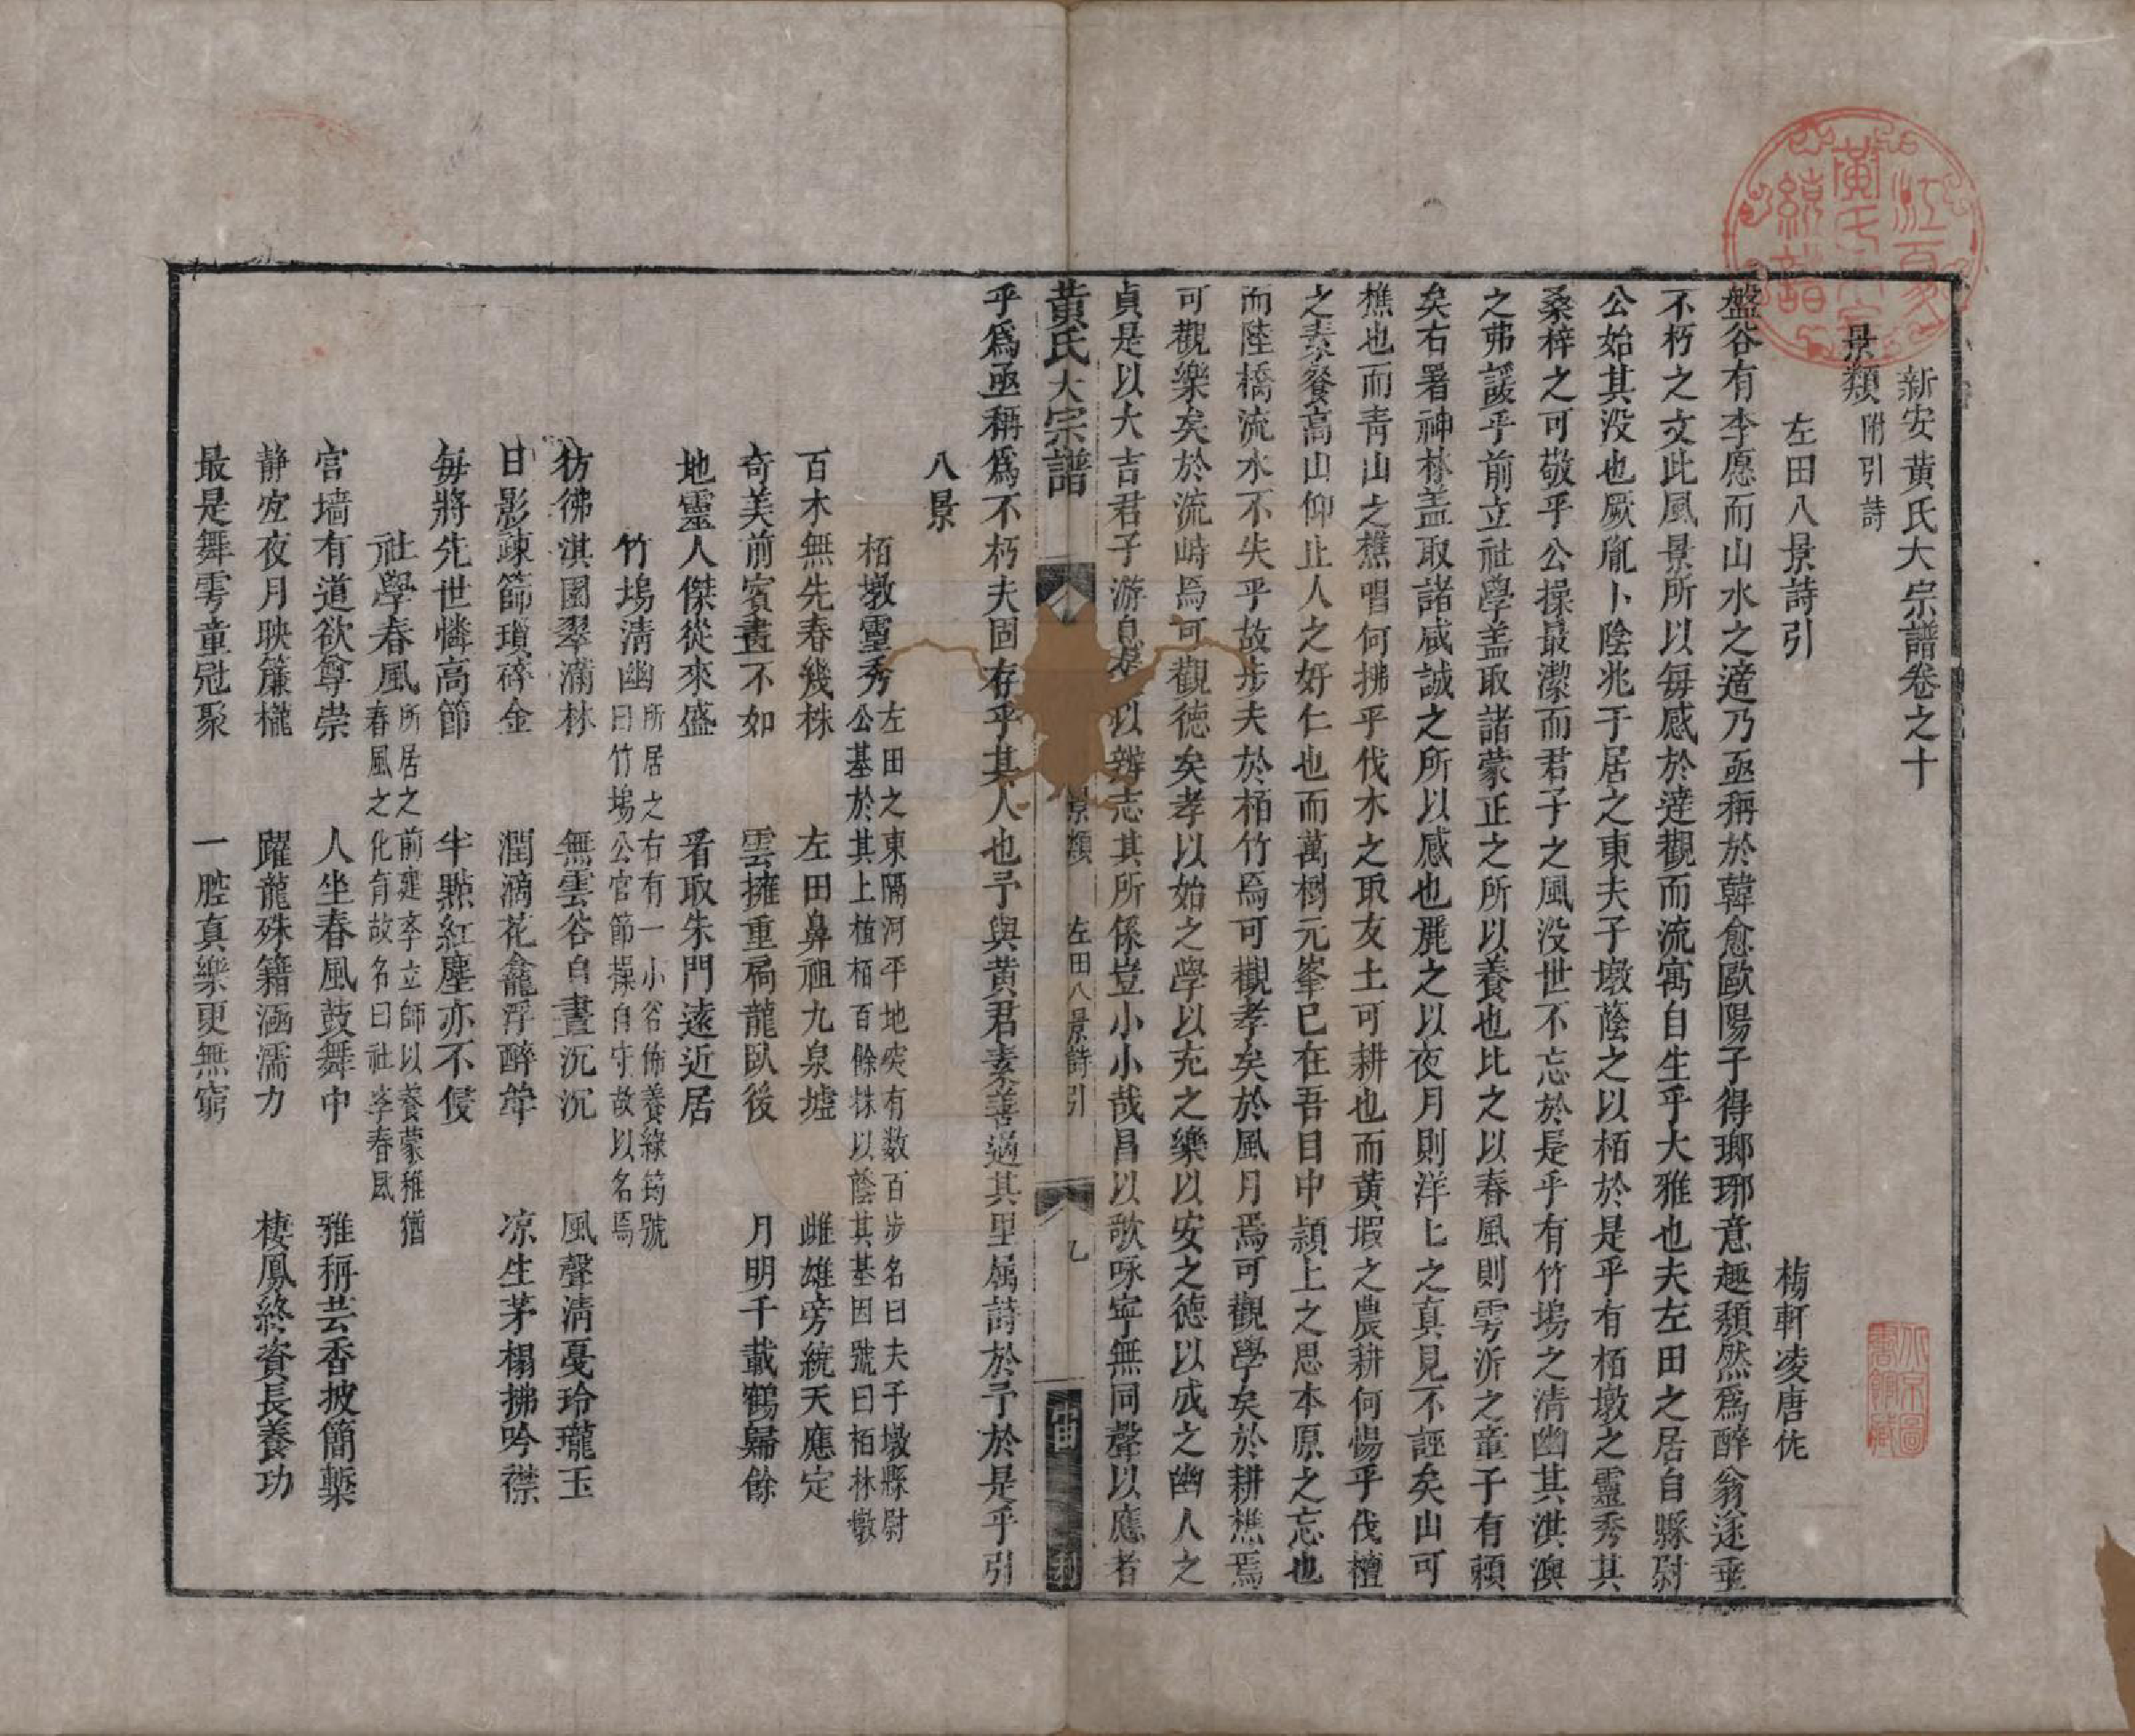 新安黃氏大宗譜卷之十
景類 附引詩
左田八景詩引
梅軒凌唐佐
盤谷有李愿而山水之適乃亟稱於韓愈歐陽子得瑯琊意趣頹然爲醉翁遂垂
不朽之文此風景所以每感於達觀而流寓自生乎大雅也夫左田之居自縣尉
公始其没也厥胤卜陰兆于居之東夫子墩蔭之以栢於是乎有栢墩之靈秀其
桑梓之可敬乎公操最潔而君子之風没世不忘於是乎有竹塢之清幽其淇澳
之弗諼乎前立社學盖取諸蒙正之所以養也比之以春風則雩沂之童子有頼
矣右署神林盖取諸咸誠之所以感也麗之以夜月則洋匕之真見不誣矣山可
樵也而青山之樵唱何拂乎伐木之取友土可耕也而黄塅之農耕何愓乎伐檀
之素餐高山仰止人之好仁也而萬樹元峯已在吾目中潁上之思本原之忘也
而陸橋流水不失乎故步夫於栢竹焉可觀孝矣於風月焉可觀學矣於耕樵焉
可觀樂矣於流峙焉可觀德矣孝以始之學以充之樂以安之德以成之幽人之
貞是以大吉君子游息以辨志其所係豈小小哉昌以歌咏寧無同聲以應者
黃氏大宗譜 景類 左田八景詩引 乙
乎爲亟稱爲不朽夫固存乎其人也予與黃君素善過其里属詩於予於是乎引
八景
栢墩靈秀 左田之東隔河平地突有数百步名曰夫子墩縣尉
公基於其上植栢百餘株以蔭其基因號曰栢林墩
百木無先春幾株 左田鼻祖九泉墟 雌雄旁統天應定
奇美前賓畫不如 雲擁重扃龍臥後 月明千載鶴歸餘
地靈人傑從來盛 看取朱門遠近居
竹塢清幽 所居之右有一小谷佈養綠筠號
曰竹塢公官節操自守故以名焉
彷彿淇園翠滿林 無雲谷自晝沉沉 風聲清戞玲瓏玉
日影疎篩瑣碎金 潤滴花龕浮醉斝 凉生茅榻拂吟襟
每將先世憐高節 半㸃紅塵亦不侵
社學春風 所居之前建斈立師以養蒙稚猶
春風之化育故名曰社斈春風
宫墙有道欲尊崇 人坐春風鼓舞中 雅稱芸香披簡槧
静宐夜月映簾櫳 躍龍殊籍涵濡力 棲鳳終資長養功
最是舞雩童冠聚 一腔真樂更無窮